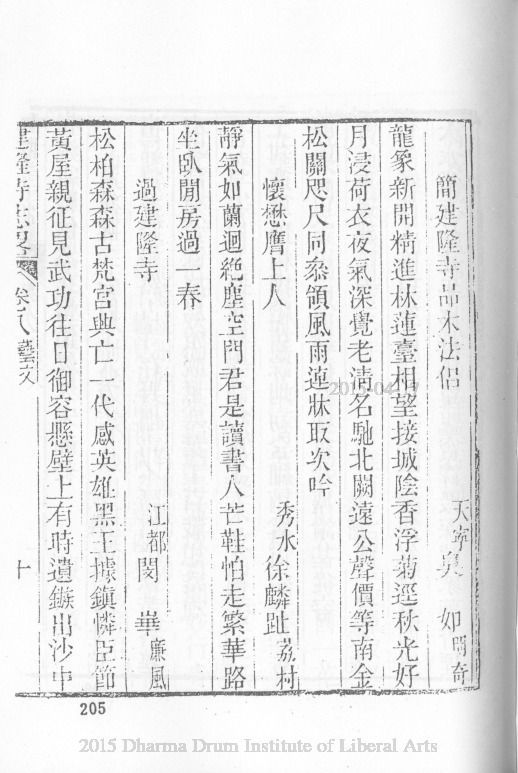 簡建隆寺品木法侶
天寧吳 如 問奇
龍象新開精進林蓮臺相望接城陰香浮菊逕秋光好
月浸荷衣夜氣深覺老清名馳北闕遠公聲價等南金
松關咫尺同叅領風雨連牀取次吟
懷懋膺上人
秀水徐麟趾荔村
靜氣如蘭迥絕塵空門君是讀書人芒鞋怕走繁華路
坐臥閒房過一春
過建隆寺
江都閔 崋廉風
松柏森森古梵宮興亡一代感英雄黑王據鎮憐臣節
黃屋親征見武功往日御容懸壁上有時遺鏃出沙中
建隆寺志畧 卷八 藝文 十
205
2015 Dharma Drum Institute of Liberal Arts